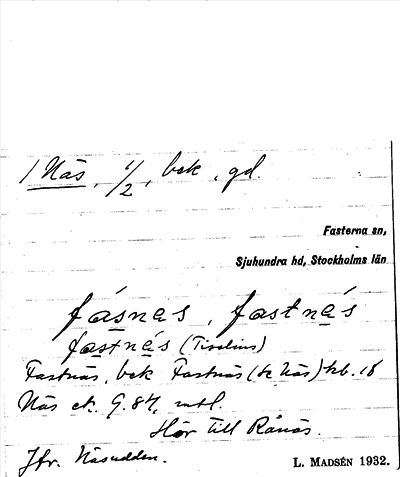 1 Näs, 1/2, bek, gd.
Fasterna sn,
Sjuhundra hd, Stockholms län
fásnes, fastnés
fastnés (Tiselius)
Fastnäs, bek Fastnäs (& Näs) kb. 18
Näs ek. G. 87, mtl.
Hör till Rånäs.
Jfr. Näsudden.
L. MADSÉN 1932.